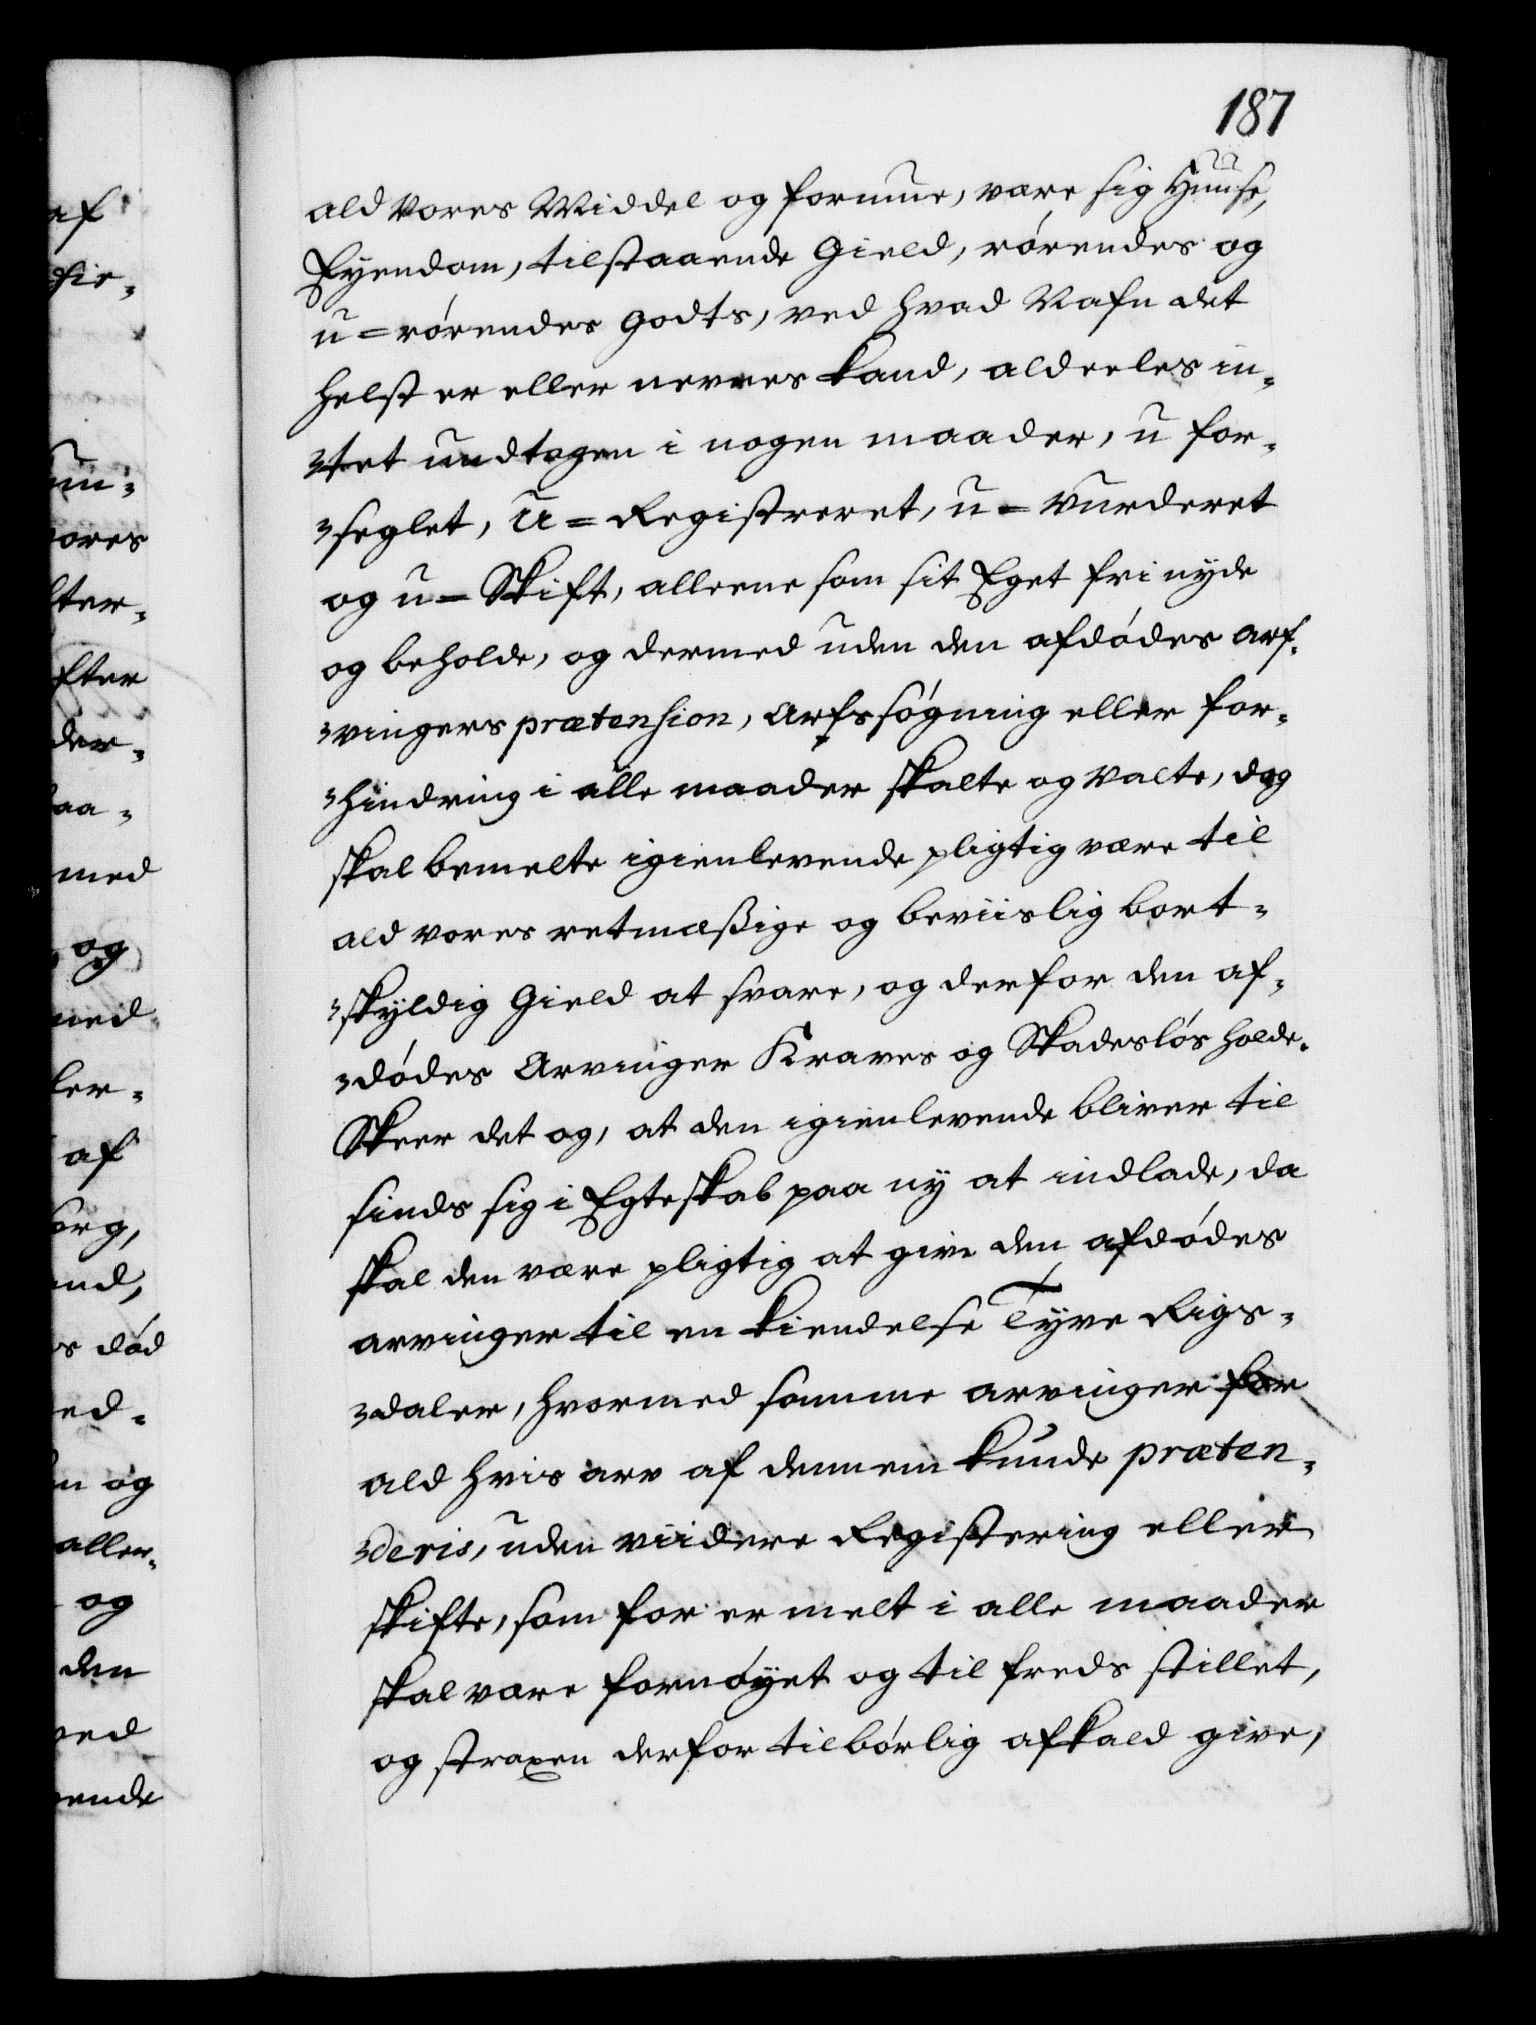 187
ald vores Middel og formue, være sig Huuse,
Eyendom, tilstaaende Gield, rørendes og
u=rørendes Godts, ved hvad Nafn det
helst er eller nevnes kand, aldeeles in-
-tet undtagen i nogen maader, u for-
-seglet, U=Registreret, u=Vurderet
og u=Skift, alleene som sit Eget fri nyde
og beholde, og dermed uden den afdødes arf-
-vingers prætension, Arfs søgning eller for-
-hindring i alle maader skalte og valte, dog
skal bemelte igienlevende pligtig være til
ald vores retmæßige og beviislig bort-
-skyldig Gield at svare, og derfor den af-
-dødes Arvinger Kraves og Skadesløs holde.
Skeer det og, at den igienlevende bliver til
sinds sig i Egteskab paa ny at indlade, da
skal den være pligtig at give den afdødes
arvinger til en kiendelse Tyve Rigs-
-daler, hvormed samme arvinger for
ald hvis arv af dennem kunde præten-
-deris, uden viidere Registering eller
skifte, som for er melt i alle maader
skal være fornøyet og til freds stillet,
og straxen derfor tilbørlig afkald give,
af
fie-
um-
vores
fter-
fter
der-
aa-
med
og
med
ler-
af
org,
and,
s død
ed-
n og
aller-
og
den
ved
vende